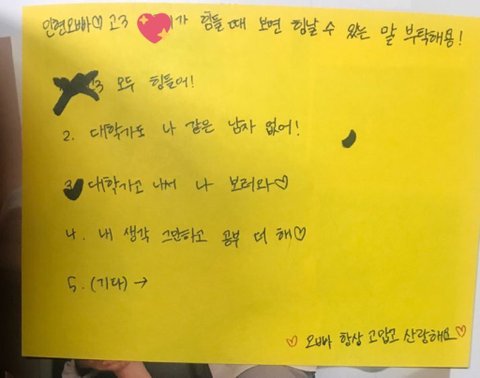 인현오빠♡ 고3 가 힘들 때 보면 힘날 수 있는 말 부탁해용!
3 모두 힘들어!
2. 대학가도 나 같은 남자 없어!
3 대학가고 나서 나 보러와♡
4. 내 생각 그만하고 공부 더 해♡
5. (기타) →
♡ 오빠 항상 고맙고 사랑해요♡